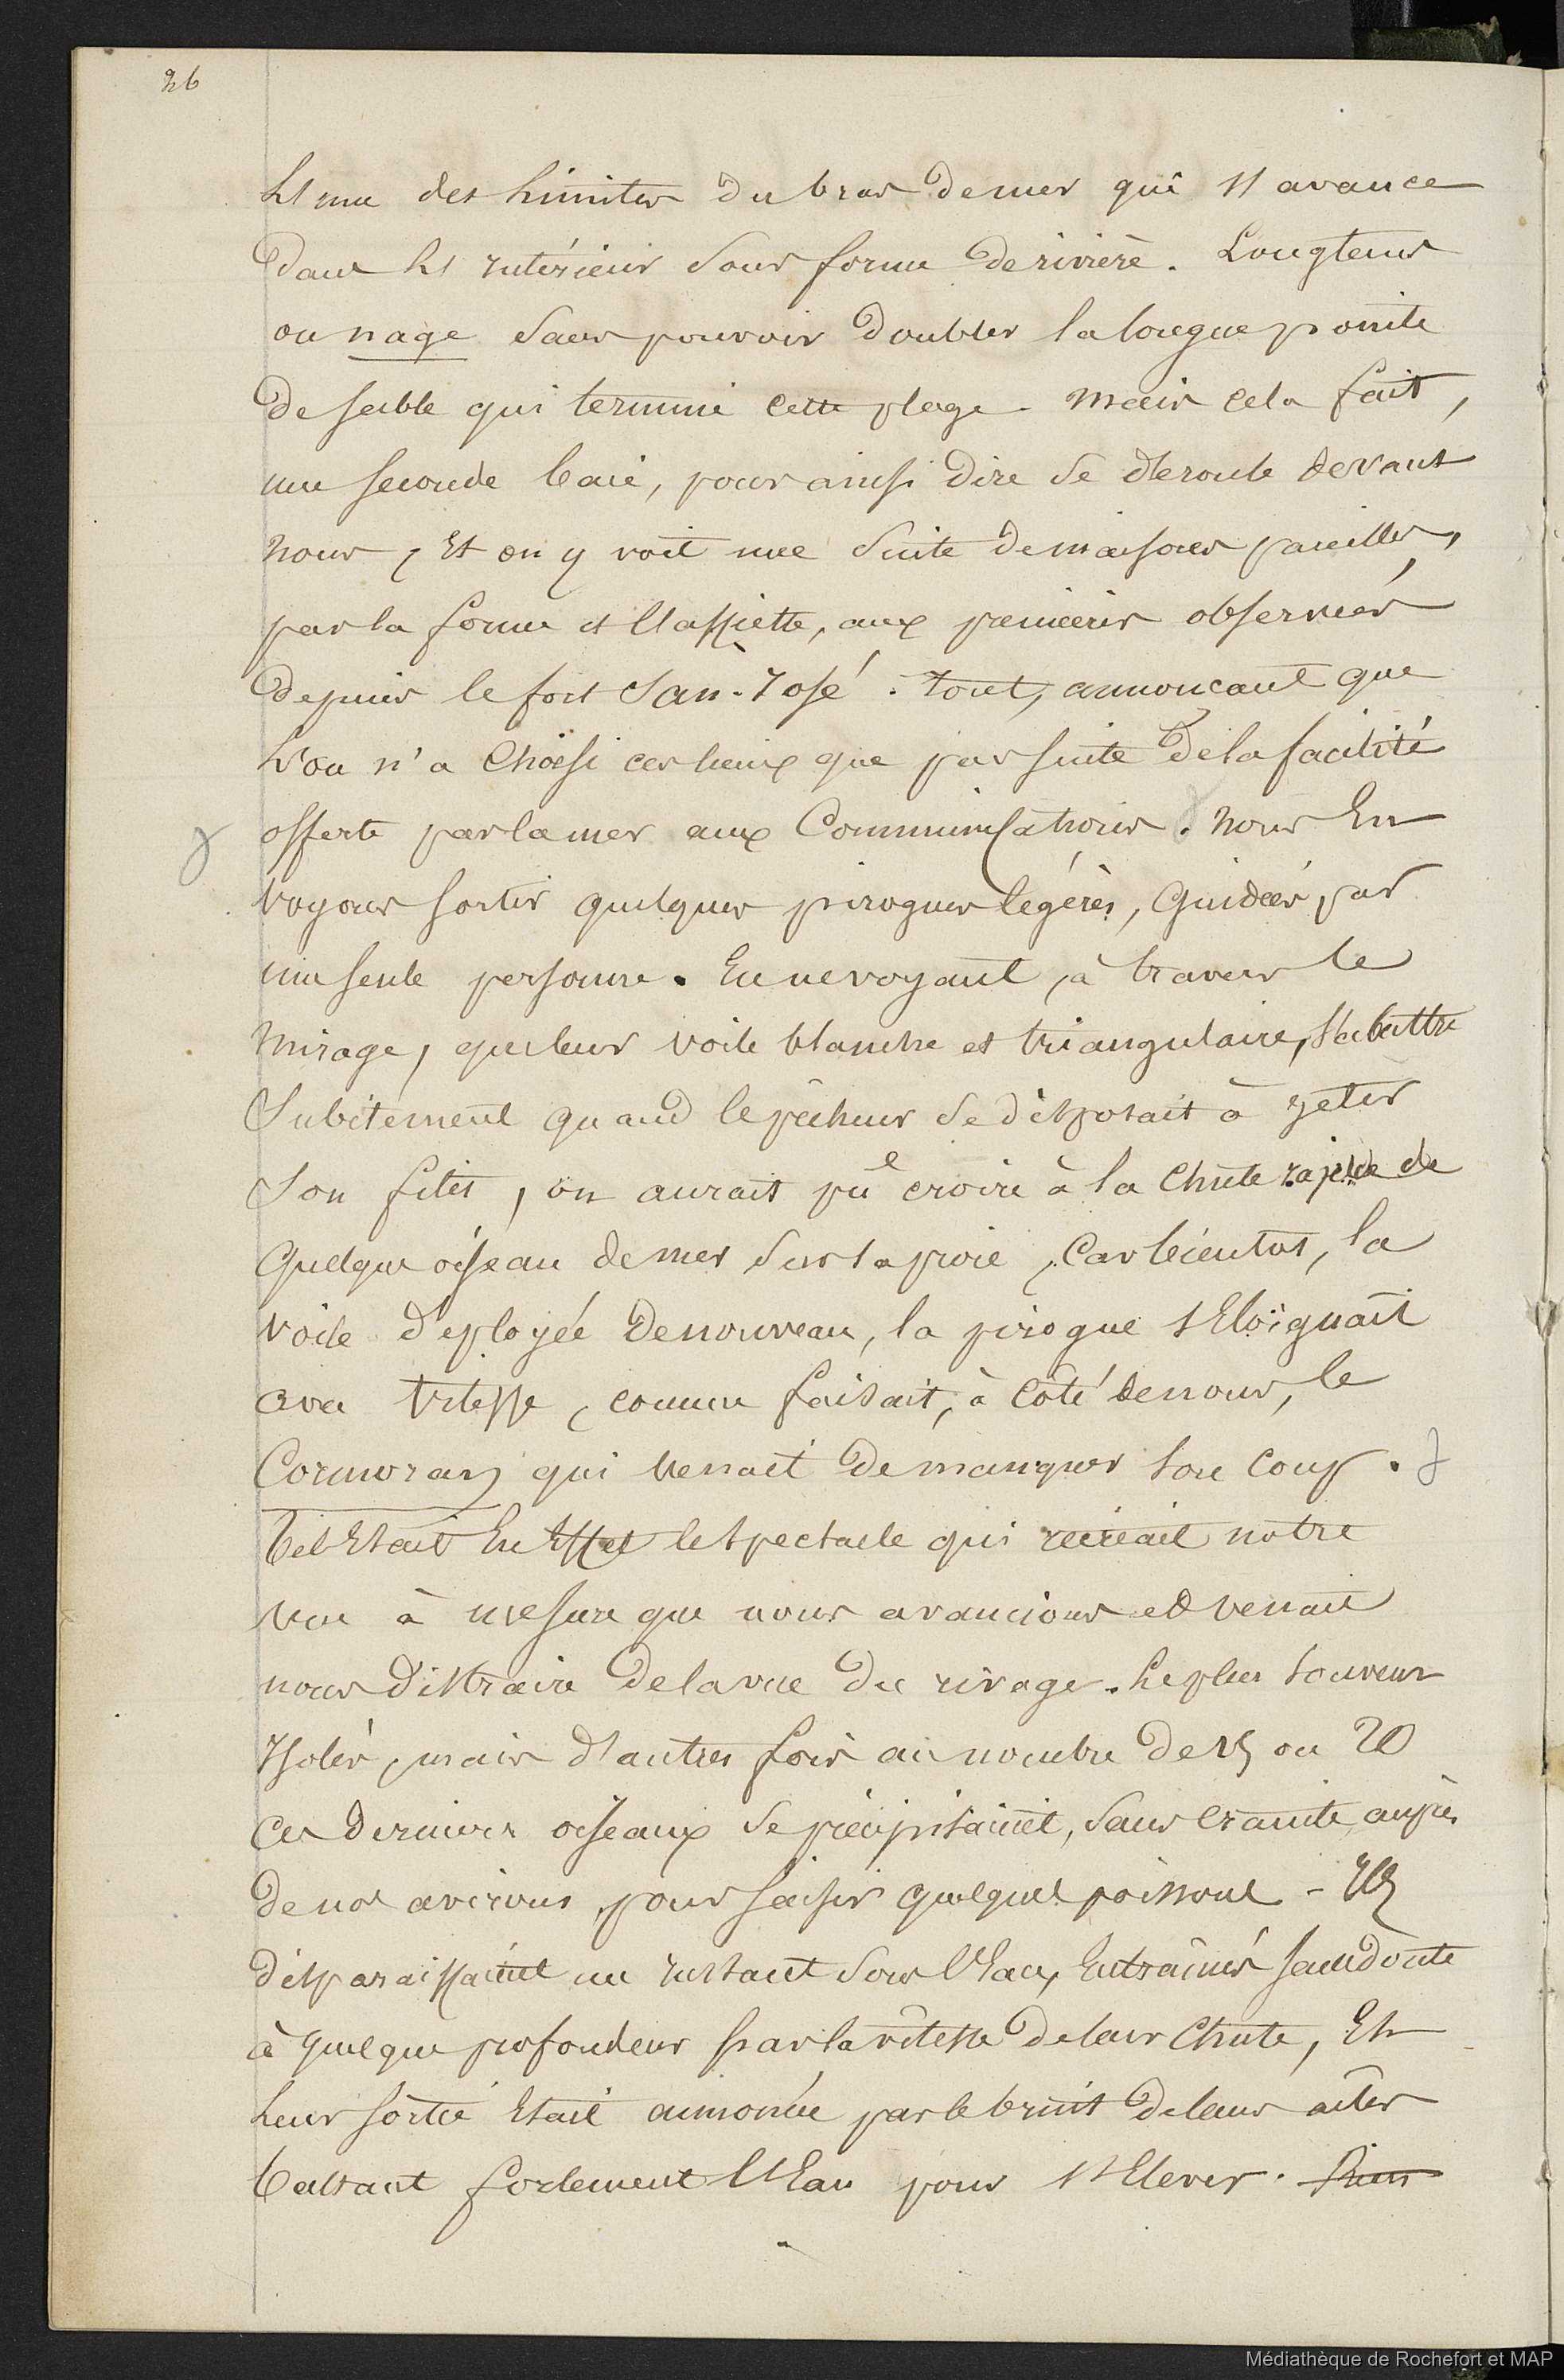 26
L'une des limites du bras de mer qui s'avance
dans l'intérieur sous forme de rivière. Longtems
on nage sans pouvoir doubler la longue pointe
de sable qui termine cette plage. Mais cela fait,
une seconde baie, pour ainsi dire se déroule devant
nous, Et on y voit une suite de maisons pareilles,
par la forme et l'assiette, aux premières observées
depuis le fort San-José. Tout, annonçant que
L'on n'a choisi ces lieux que par suite de la facilité
offerte par la mer aux Communications. Nous En
voyons sortir quelques pirogues légères, Guidées par
une seule personne. En ne voyant, à travers le
mirage, que leur voile blanche et triangulaire, s'abattre
Subitement quand le pêcheur se disposait à jeter
Son filet, on aurait pu croire à la chute rapide de
quelque oiseau de mer sur la proie, Car bientot, la
voile déployée de nouveau, la pirogue s'Eloignait
avec vitesse, comme faisait, à côté de nous, le
Cormoran qui venait de manquer son coup.
Tel Etait En Effet le spectacle qui récréait notre
vue à mesure que nous avancions et venait
nous distraire de la vue du rivage. Le plus souvent
Isolés, mais d'autres fois au nombre de 15 ou 20
ces derniers oiseaux se précipitaient, sans crainte, auprès
de nos avirons pour saisir quelques poissons - Ils
disparaissaient un Instant sous l'Eau, Entraînés sans doute
à quelque profondeur par la vitesse de leur chute, Et
Leur sortie Etait annoncée par le bruit de leurs ailes
battant fortement l'Eau pour s'Elever. Rien
Médiathèque de Rochefort et MAP